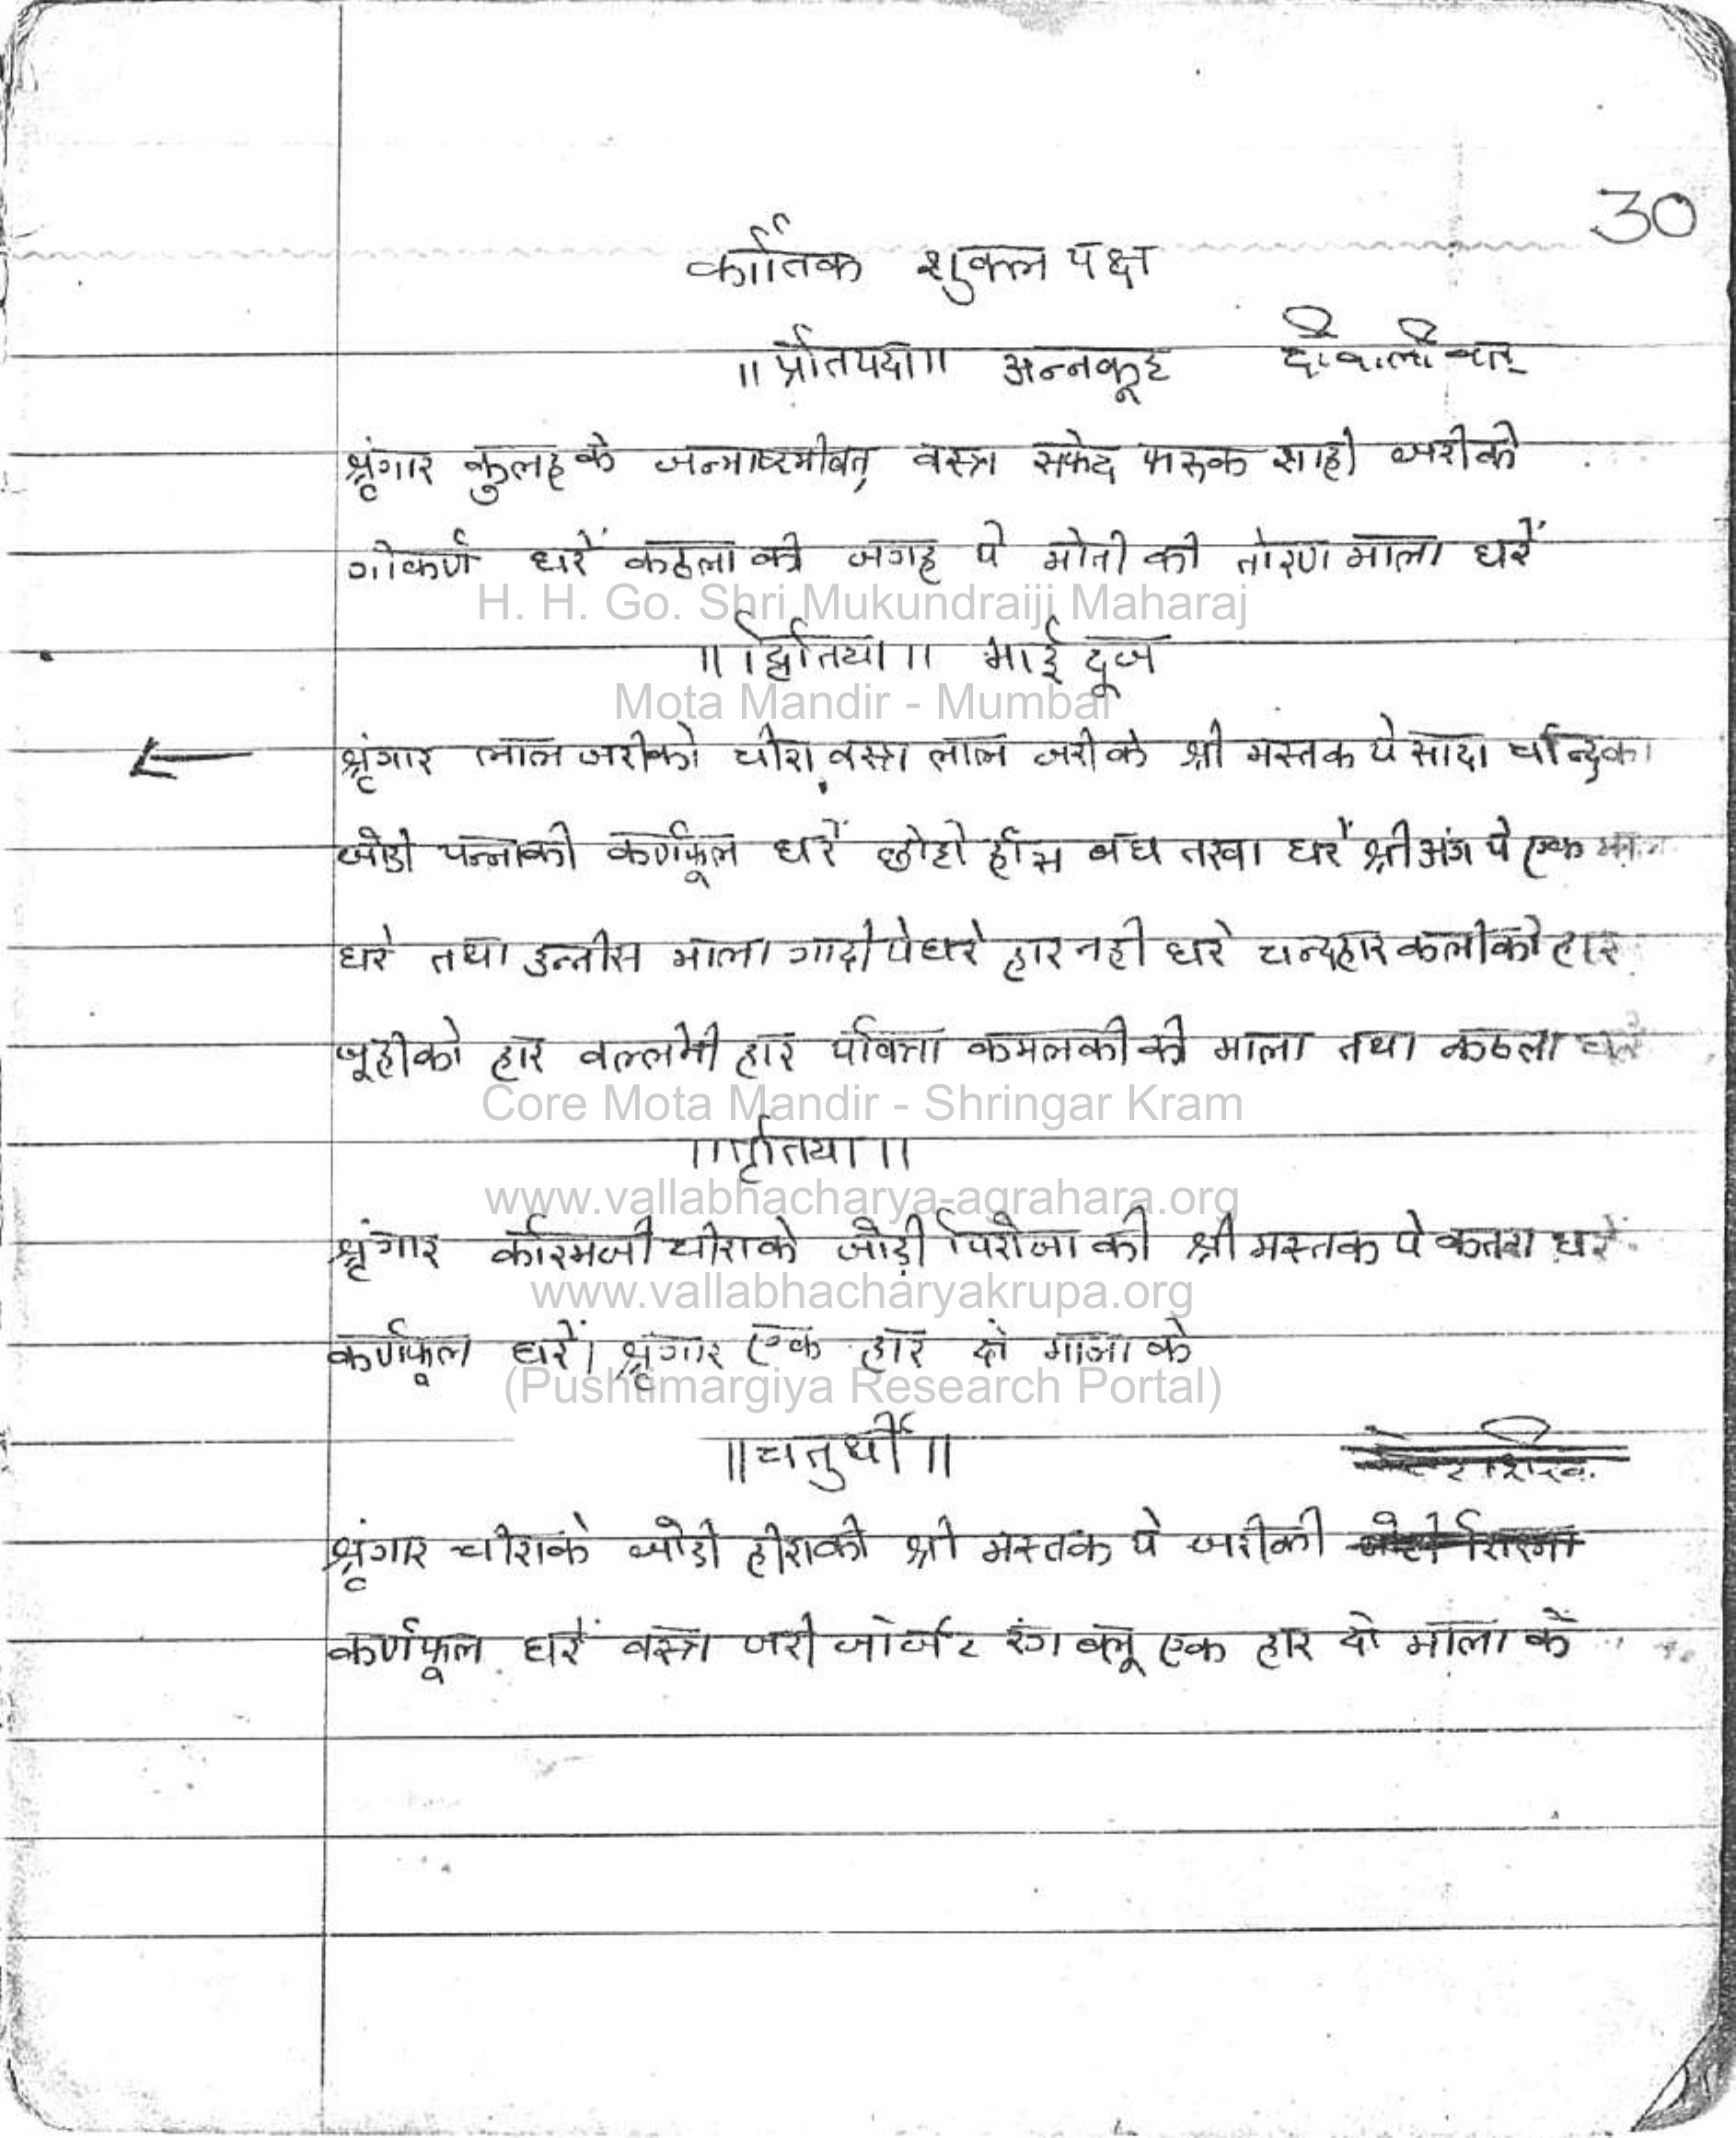 30
कार्तिक शुक्ल पक्ष
॥ प्रतिपदा॥ अन्नकूट दीवाली वत्
श्रृंगार कुलह के जन्माष्टमीवत् वस्त्र सफेद फरुक साही जरीको
गोकर्ण धरें कठला की जगह पे मोती की तोरण माला धरें
H. H. Go. Shri Mukundraiji Maharaj
॥ द्वितिया॥ भाई दूज
Mota Mandir - Mumbai
श्रृंगार लाल जरीको चीरा वस्त्र लाल जरी के श्री मस्तक पे सादा चन्द्रिका
जोडी पन्नाकी कर्णफूल धरें छोटो हाँस बंध तरवा धरें श्री अंग पे एक
धरे तथा उन्तीस माला गादी पे धरे हार नही धरे चन्द्रहार कलीको हार
जूहीको हार वल्लमी हार पवित्रा कमलकी की माला तथा कठला
Core Mota Mandir - Shringar Kram
॥तृतिया॥
www.vallabhacharya-agrahara.org
श्रृंगार किरमजी चीराके जोड़ी पिरोजा की श्री मस्तक पे कतरा धरें
www.vallabhacharyakrupa.org
कर्णफूल धरें। श्रृंगार एक हार दो माला के
(Pushtimargiya Research Portal)
॥चतुर्थी॥
श्रृंगार चीराके जोडी हीराकी श्री मस्तक पे जरीकी
कर्णफूल धरें वस्त्र जरी जोर्जट रंग ब्लू एक हार दो माला के